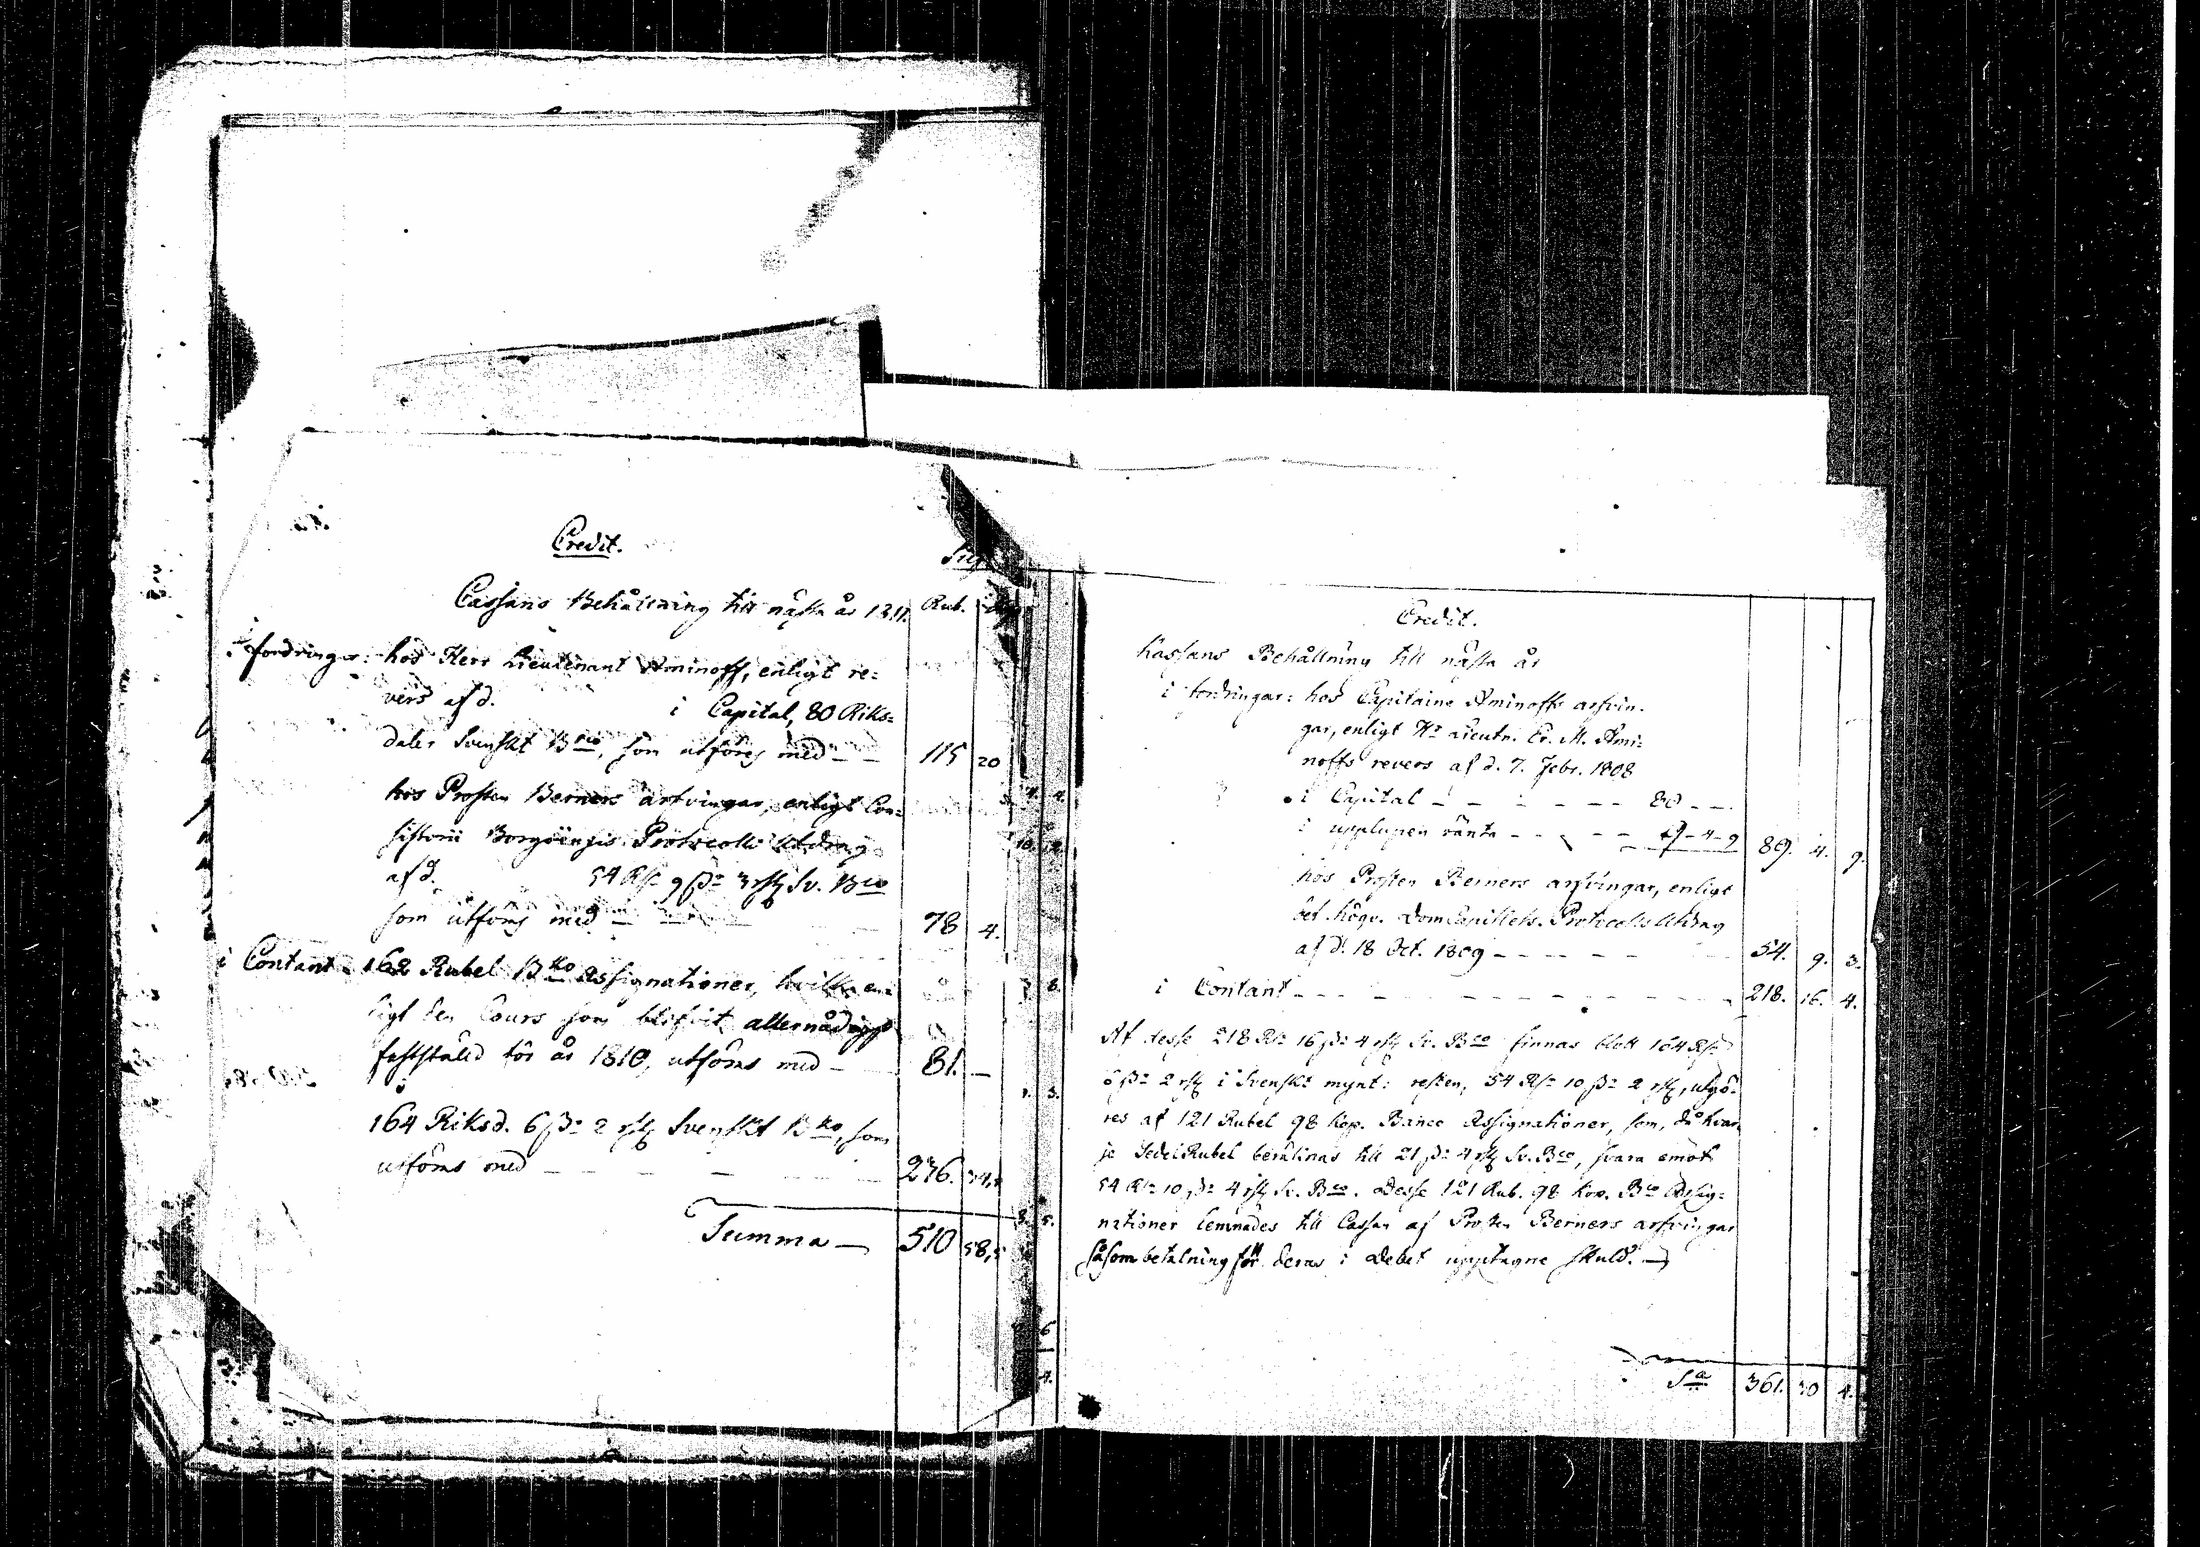 Credit.
Cassans Behållning till nästa år 1811. Rub.
i fordringar: hos Herr Lieutenant Aminoff, enligt re-
vers af d. i Capital, 80 Riks-
daler Svenskt Bco, som utföres med — — 115 20
hos Prosten Berners arfvingar, enligt Con-
sistorii Borgoensis Protocolls Utdrag
af d. 54 Rdr 9 ßr 3 rst Sv. Bco
som utförs med — 78 4.
i Contant. 162 Rubel Bko Assignationer, hvilka en-
ligt den Cours som blifvit allernådigst
fastställd för år 1810, utförs med — 81. —
164 Riksd. 6 ßr 2 rst Svenskt Bko, som
utförs med — — — 236.
Summa — 510
Credit.
Kassans Behållning till nästa år
i fordringar: hos Capitaine Aminoffs arfvin-
gar, enligt Hr Lieutn. Er. M. Ami-
noffs revers af d. 7. Febr. 1808
i Capital — — — — — 80 — —.
i upplupen ränta — — — — 9 — 4 — 9 89. 4. 9.
hos Prosten Berners arfvingar, enligt
det högv. DomCapitlets Protocolls Utdrag
af d. 18 Oct. 1809 — — — — — 54. 9. 3.
i Contant — — — — — — — — 218. 16. 4.
Af desse 218 Rdr 16 ßr 4 rst Sv. Bco finnas blott 164 Rdr
6 ßr 2 rst i Svenskt mynt: resten, 54 Rdr 10 ßr 2 rst, utgö-
res af 121 Rubel 98 kop. Banco Assignationer, som, då hvar-
je SedelRubel beräknas till 21 ßr 4 rst Sv. Bco, svara emot
54 Rdr 10 ßr 4 rst Sv. Bco. Desse 121 Rub. 98 kop. Bco Assig-
nationer lemnades till Cassan af Prosten Berners arfvingar
såsom betalning för deras i Debet upptagne skuld. —
Sa 361. 30 4.